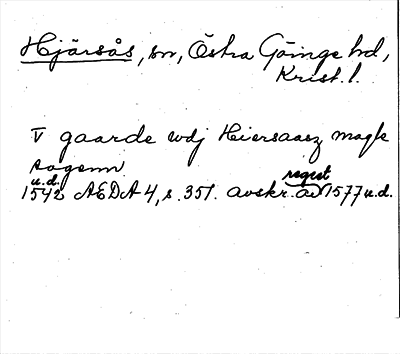 Hjärsås, sn, Östra Göinge hd,
Krist. l.
V gaarde wdj Hiersaasz magle
sogenn
u.d. regest
1542 AEDA 4, s. 351. avskr. av 1577 u.d.